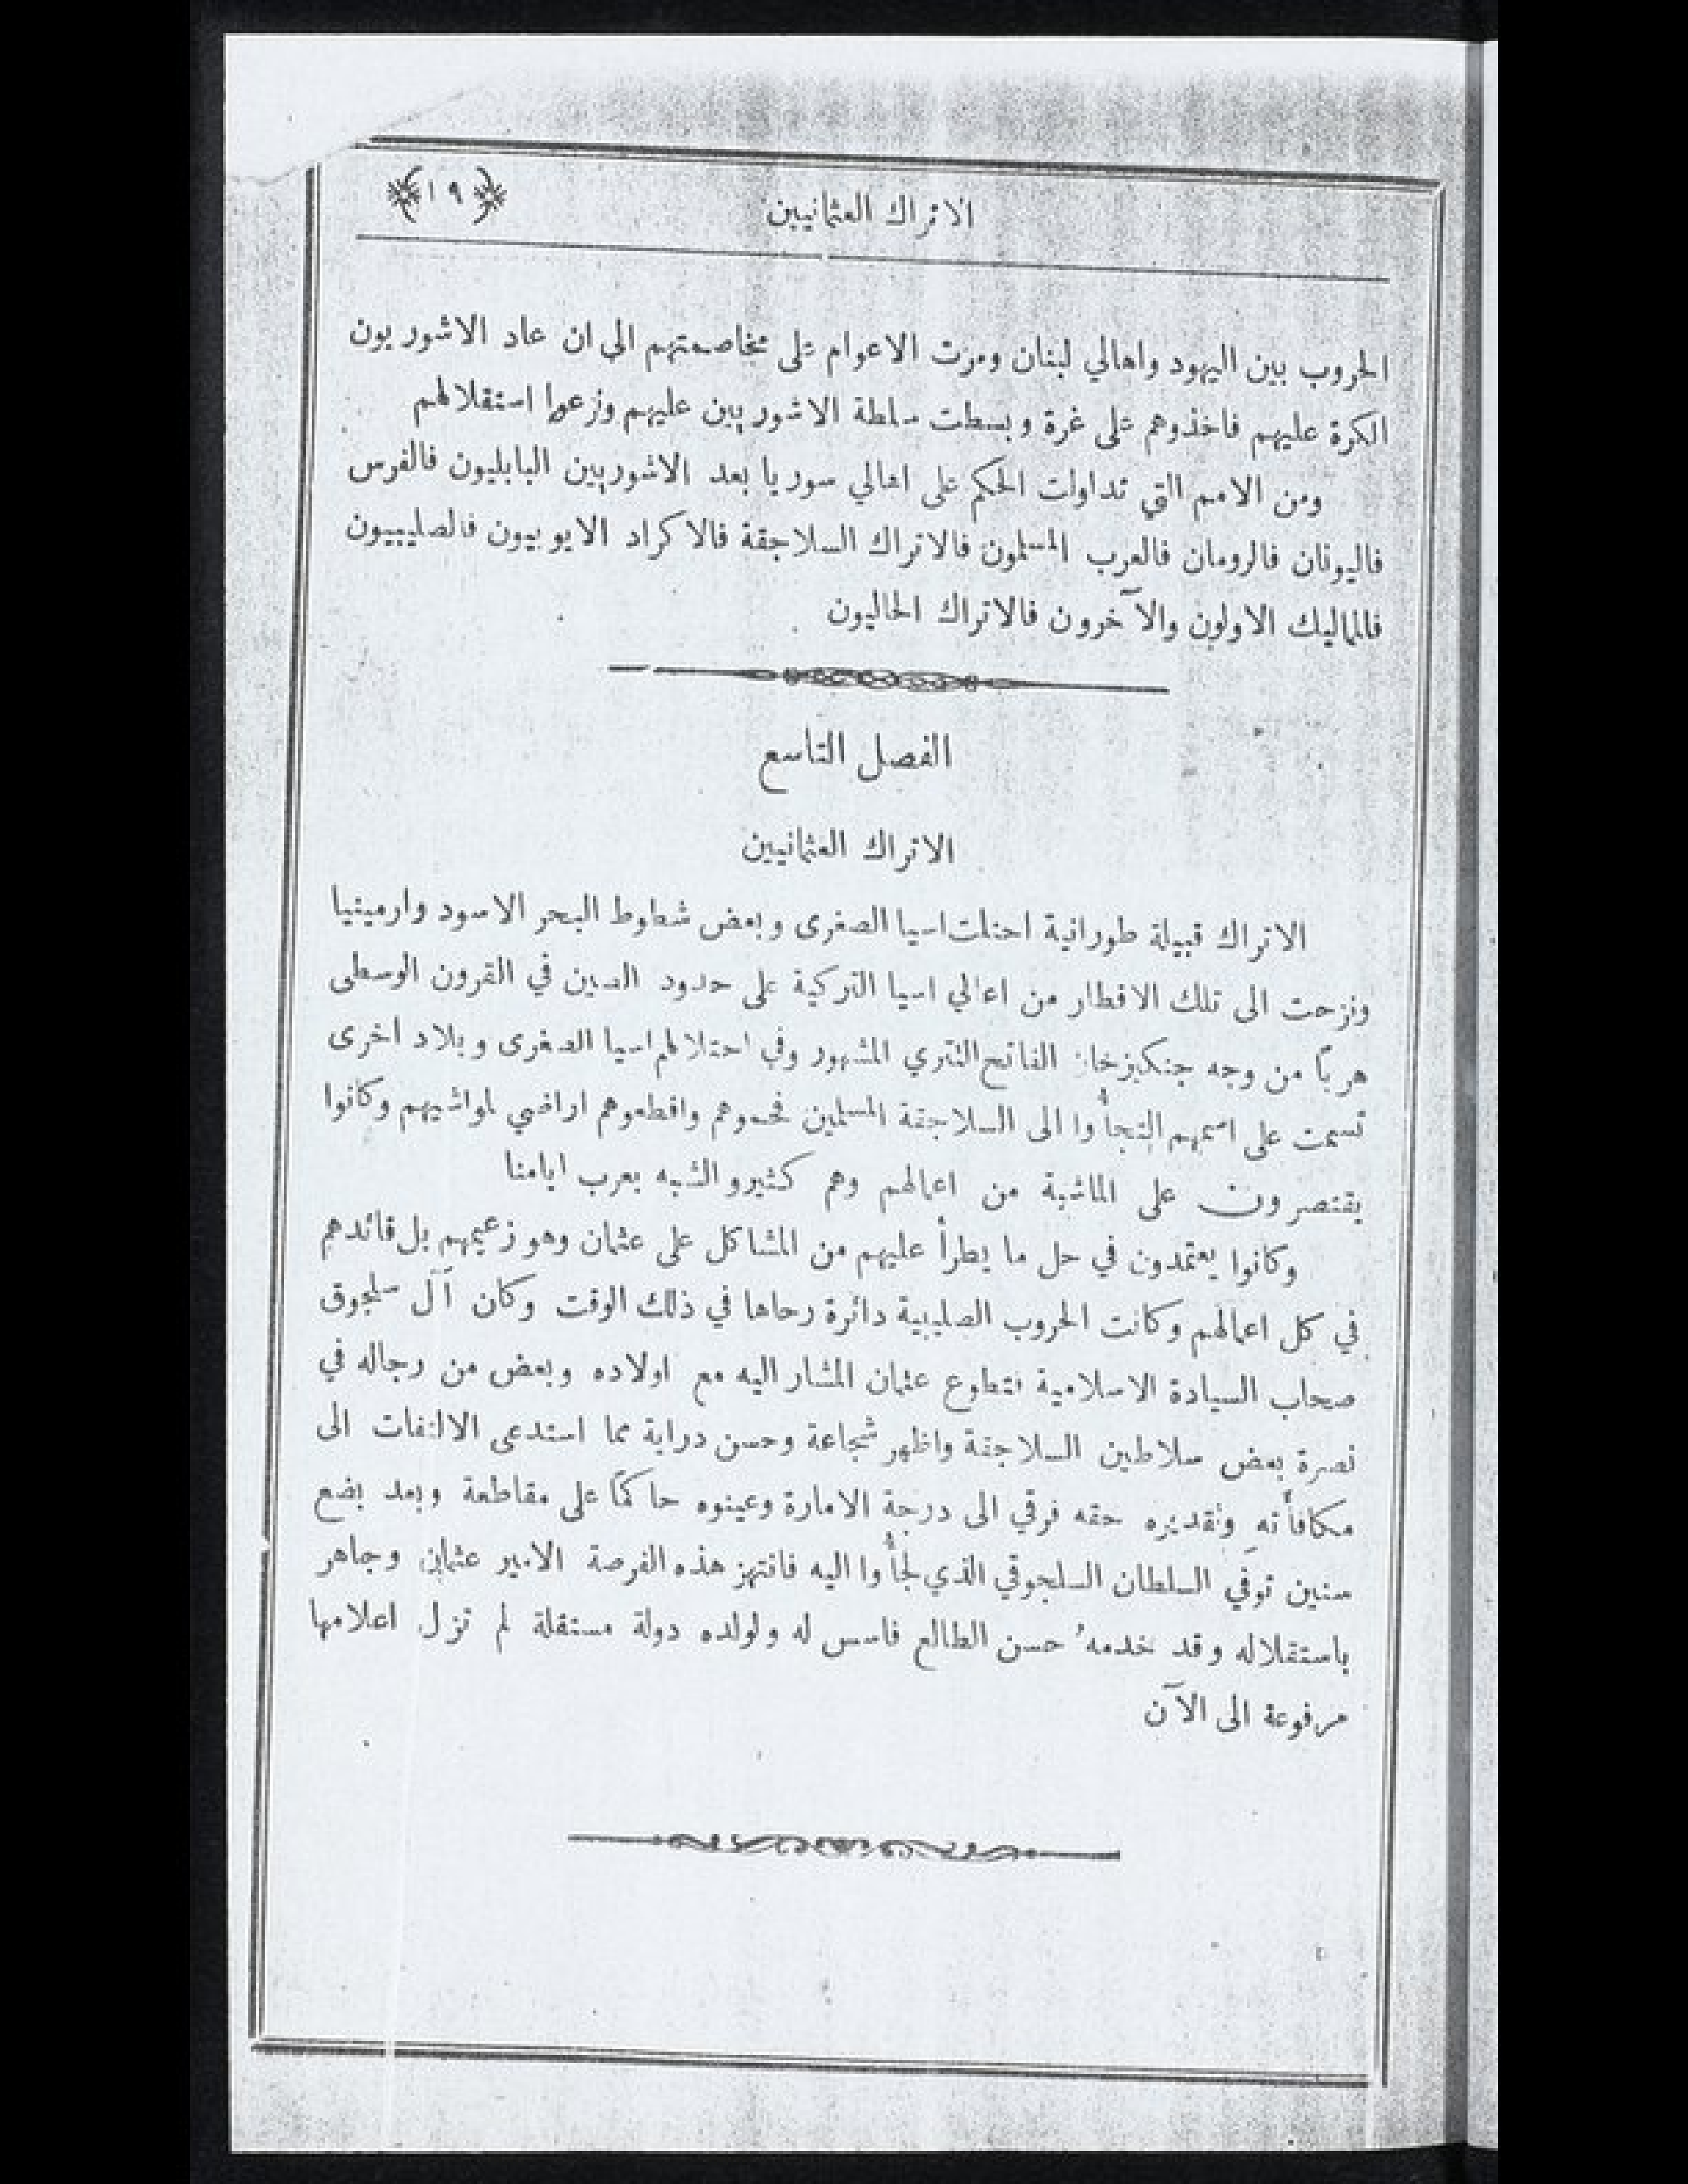 الاتراك العثمانيين
﴿١٩﴾
الحروب بين اليهود واهالي لبنان ومرت الاعوام على مخاصمتهم الى ان عاد الاشوريون
الكرة عليهم فاخذوهم على غرة وبسطت سلطة الاشوريين عليهم ونزعوا استقلالهم
ومن الامم التي تداولت الحكم على اهالي سوريا بعد الاشوريين البابليون فالفرس
فاليونان فالرومان فالعرب المسلمون فالاتراك السلاجقة فالاكراد الايوبيون فالصليبيون
فالمماليك الاولون والآخرون فالاتراك الحاليون
الفصل التاسع
الاتراك العثمانيين
الاتراك قبيلة طورانية احتلت اسيا الصغرى وبعض شطوط البحر الاسود وارمينيا
ونزحت الى تلك الاقطار من اعالي اسيا التركية على حدود الصين في القرون الوسطى
هرباً من وجه جنكيزخان الفاتح التتري المشهور وفي احتلالهم اسيا الصغرى وبلاد اخرى
تسمت على اسمهم التجأُوا الى السلاجقة المسلمين فحموهم واقطعوهم اراضي لمواشيهم وكانوا
يقتصرون على الماشية من اعمالهم وهم كثيرو الشبه بعرب ايامنا
وكانوا يعتمدون في حل ما يطرأ عليهم من المشاكل على عثمان وهو زعيمهم بل قائدهم
في كل اعمالهم وكانت الحروب الصليبية دائرة رحاها في ذلك الوقت وكان آل سلجوق
صحاب السيادة الاسلامية فتطوع عثمان المشار اليه مع اولاده وبعض من رجاله في
نصرة بعض سلاطين السلاجقة واظهر شجاعة وحسن دراية مما استدعى الالتفات الى
مكافأَته وتقديره حقه فرقي الى درجة الامارة وعينوه حاكماً على مقاطعة وبعد بضع
سنين توفي السلطان السلجوقي الذي لجأُوا اليه فانتهز هذه الفرصة الامير عثمان وجاهر
باستقلاله وقد خدمهُ حسن الطالع فاسس له ولولده دولة مستقلة لم تزل اعلامها
مرفوعة الى الآن